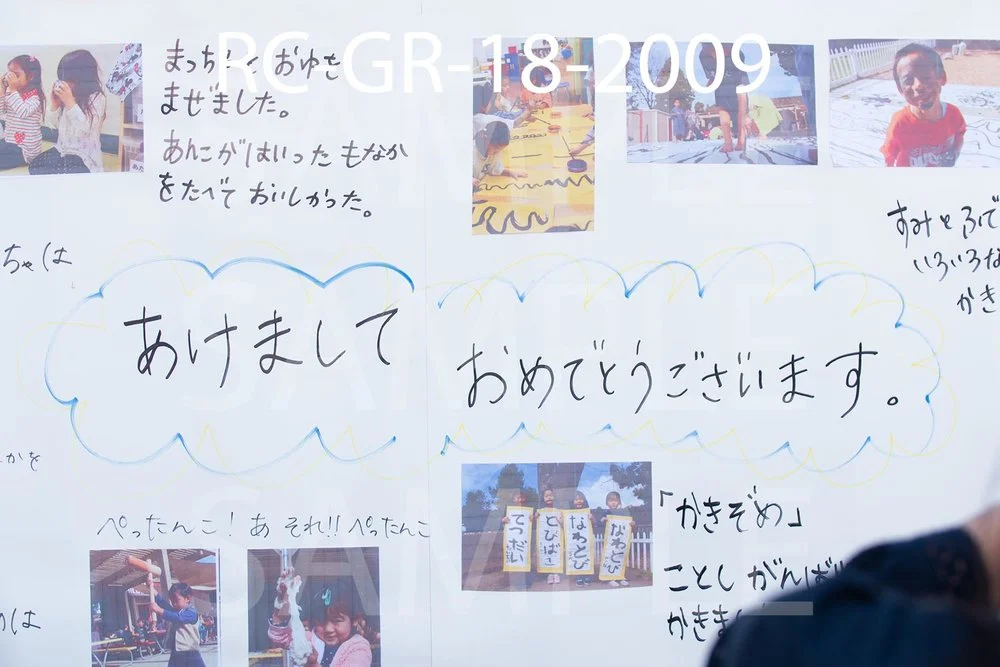 RC-GR-18-2009
まっちゃと おゆを
まぜました。
あんこがはいった もなか
をたべて おいしかった。
すみとふで
いろいろな
かき
ちゃは
あけまして おめでとうございます。
かを
ぺったんこ! あ それ!! ぺったんこ
てつだい
とびばこ
なわとび
なわとび
「かきぞめ」
ことし がんば
かきま
は
SAMPLE
SAMPLE
SAMPLE